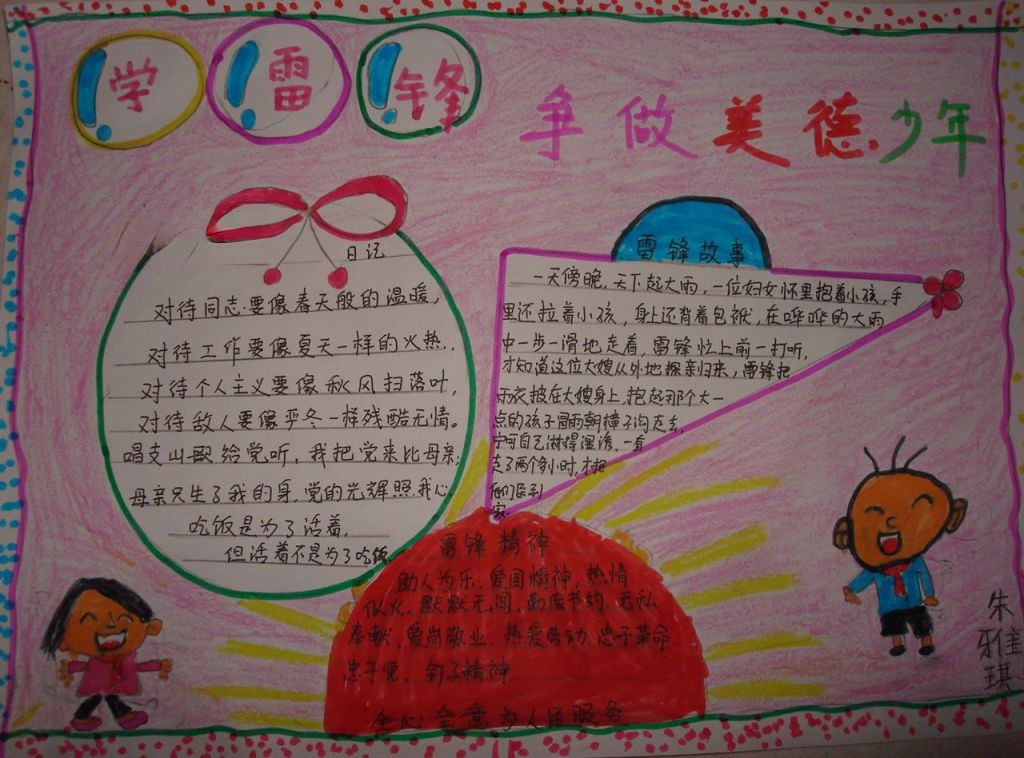 学雷锋
争做美德少年
日记
对待同志要像春天般的温暖,
对待工作要像夏天一样的火热,
对待个人主义要像秋风扫落叶,
对待敌人要像严冬一样残酷无情。
唱支山歌给党听,我把党来比母亲;
母亲只生了我的身,党的光辉照我心,
吃饭是为了活着,
但活着不是为了吃饭
雷锋故事
一天傍晚,天下起大雨,一位妇女怀里抱着小孩,手
里还拉着小孩,身上还背着包袱,在哗哗的大雨
中一步一滑地走着,雷锋忙上前一打听,
才知道这位大嫂从外地探亲归来,雷锋把
雨衣披在大嫂身上,抱起那个大一
点的孩子冒雨朝樟子沟走去,
宁可自己淋得湿淋,一直
走了两个多小时,才把
他们送到
家
雷锋精神
助人为乐、爱国精神,热情
似火、默默无闻、勤俭节约、无私
奉献、爱岗敬业、热爱劳动、忠于革命
忠于党,钉子精神
全心全意为人民服务
朱
雅
琪